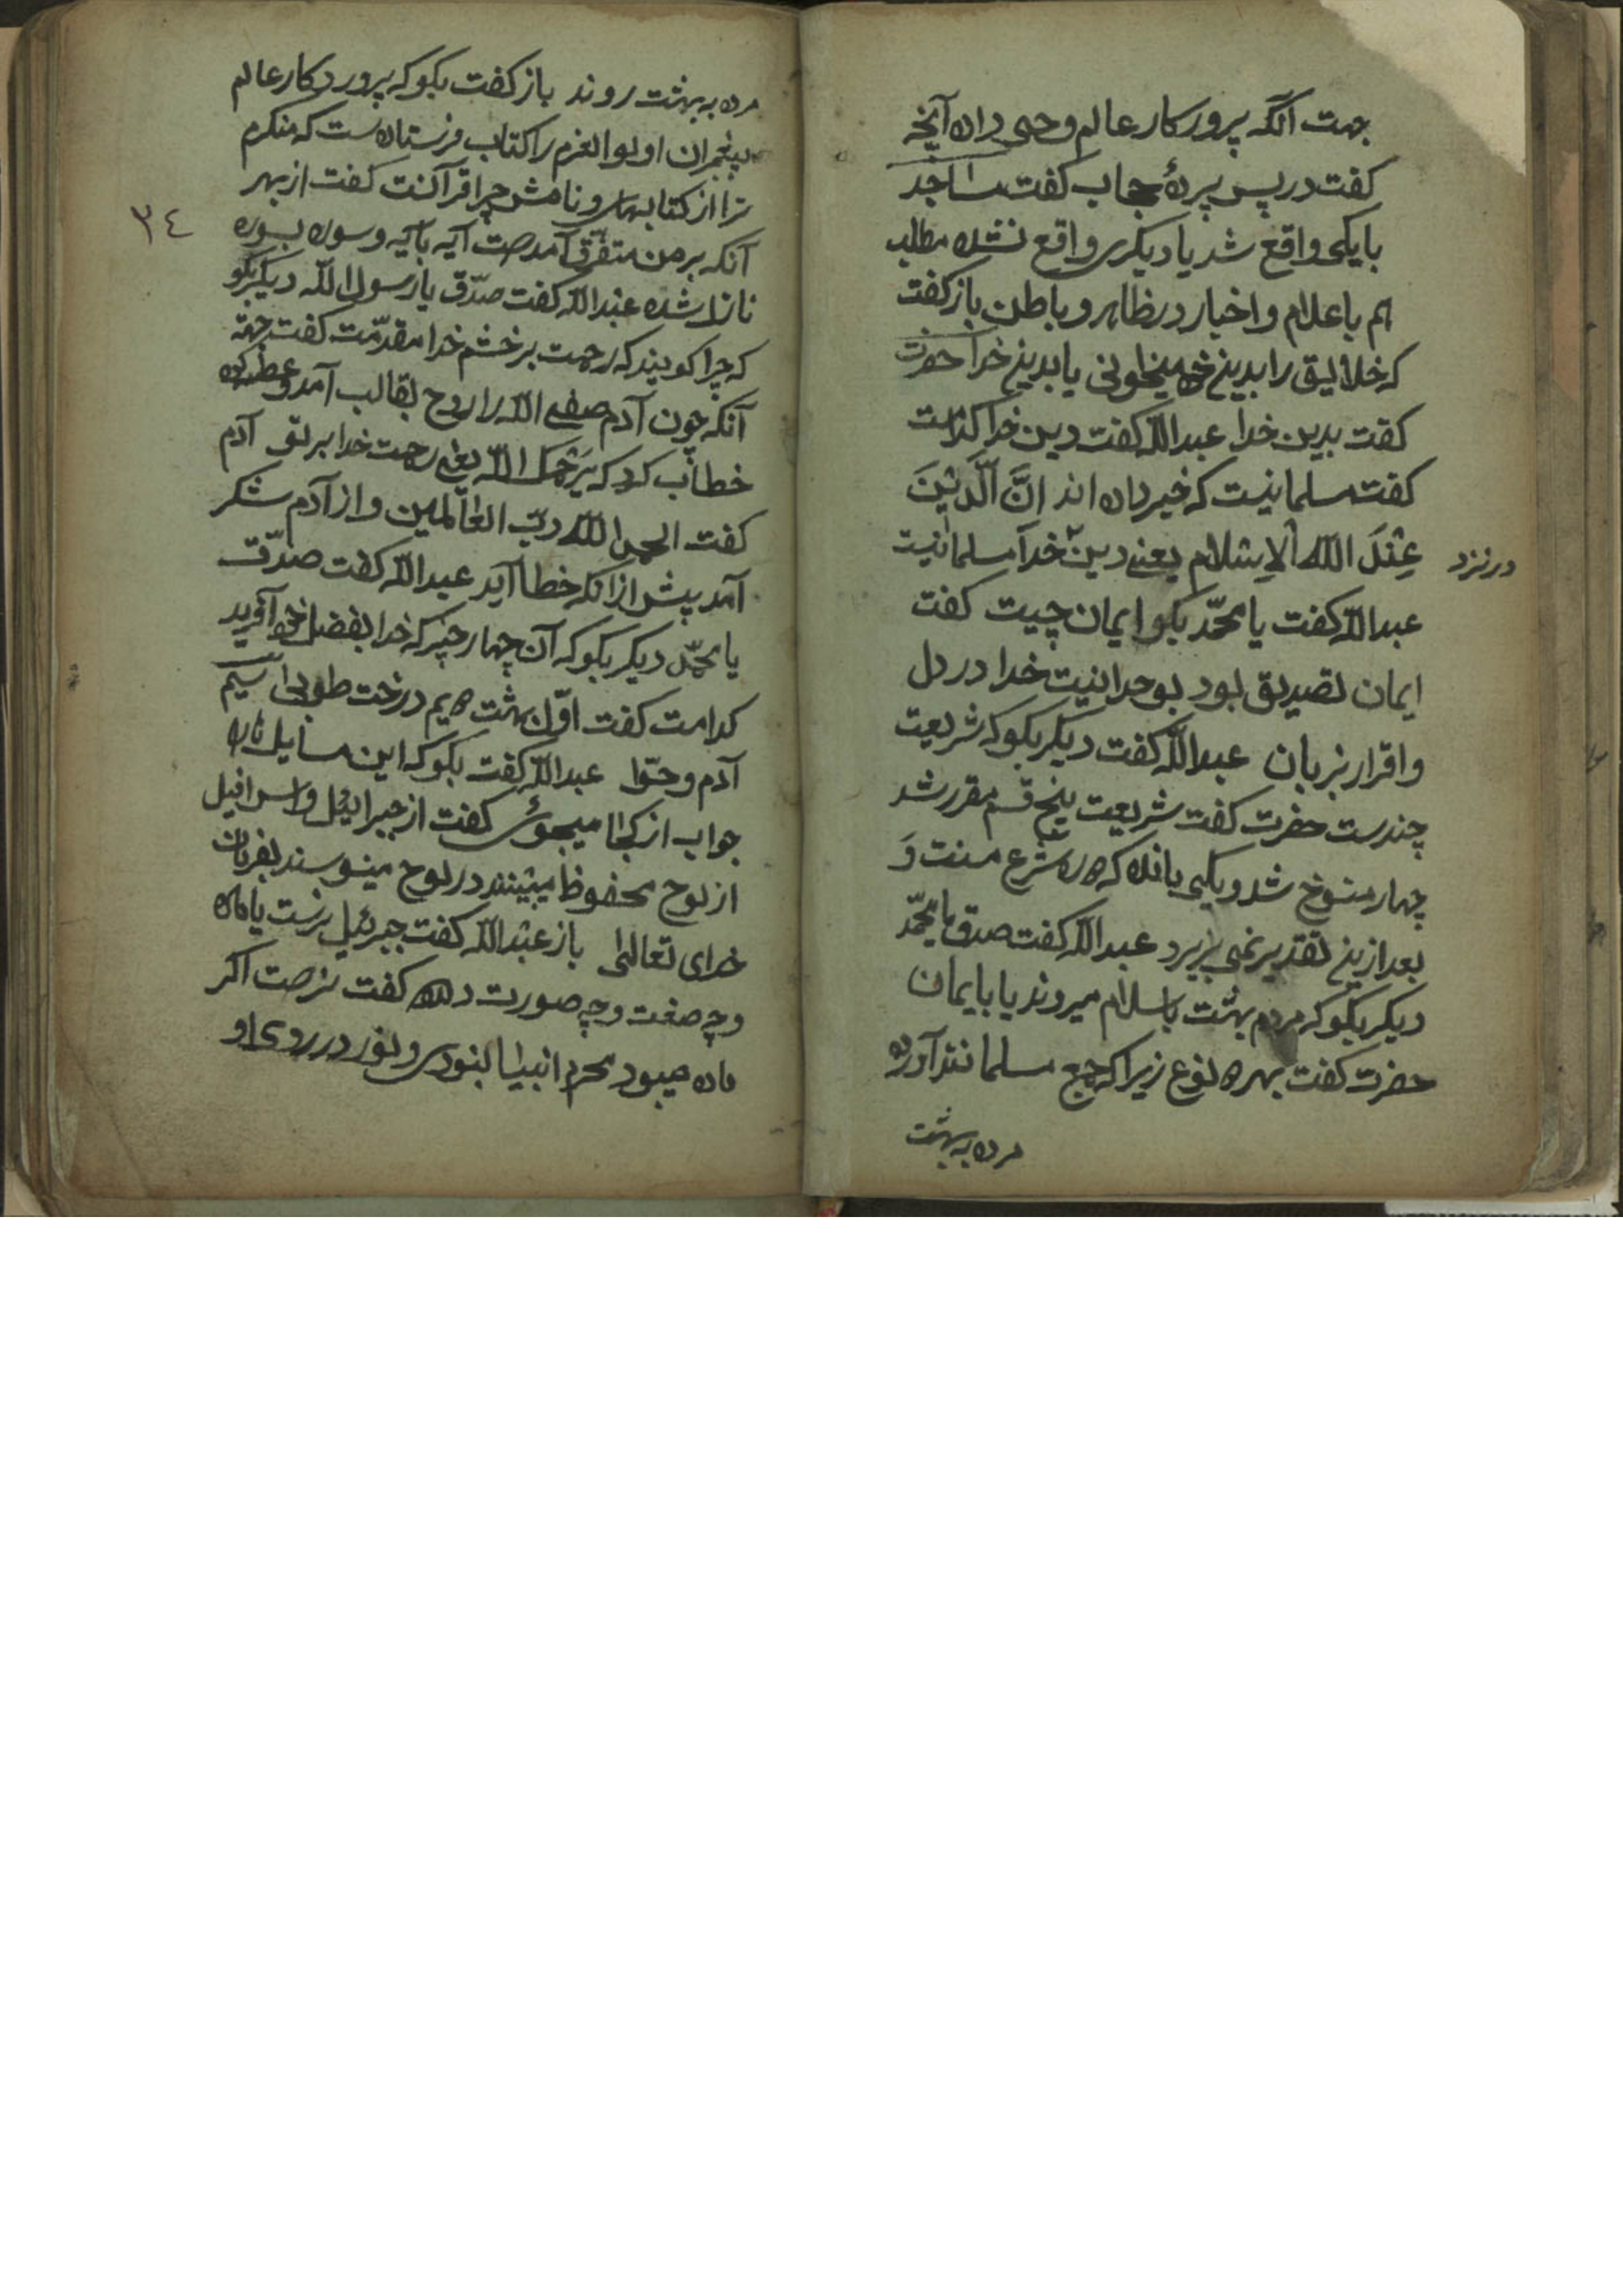 جهت آنکه پرورکار عالم وحی داده آنچه
کفت در پس پردۀ حجاب کفت ساجد
با یکی واقع شد یا دیکری واقع نشده مطالب
هم باعلام و اخبار در ظاهر و باطن باز کفت
که خلایق را بدین خود میخوانی یا بدین خدا حضرت
کفت بدین خدا عبدالله کفت دین خدا کدامست
کفت مسلمانیست که خبر داده اند اِنَّ الَّدیْنَ
عِنْدَ اللّٰه الاِسْلام یعنی دین خدا مسلمانیست
در نزد
عبدالله کفت یا محمّد بکو ایمان چیست کفت
ایمان تصدیق بود بوحدانیت خدا در دل
و اقرار بزبان عبدالله کفت دیکر بکو که شریعت
چندست حضرت کفت شریعت پنج قسم مقرر شد
چهار منسوخ شد و یکی بانده که ره شرع منست وَ
بعد ازین تقدیر نمی پزیرد عبدالله کفت صدق یا محمّد
دیکر بکو که مردم بهشت باسلام میروند یا بایمان
حضرت کفت بهر ه نوع زیرا که جمع مسلمانند آورده
مرده به بهشت
مرده به بهشت روند باز کفت بکو که پروردکار عالم
پیغمبران اولوالعزم را کتاب فرستاده ست که منکرم
ترا از کتابهاس و نامش چرا قرآنست کفت از بهر
٣٤
آنکه بر من متفرق آمدست آیه بآیه و سوره بسوره
نازل شده عبدالله کفت صدّق یا رسول الله دیکر بکو
که چرا کویند که رحمت بر خشم خدا مقدّمت کفت جهة
آنکه چون آدم صفی الله را روح بقالب آمد و عطسه کرد
خطاب کرد که یَرْحَمک اللّه یعنی رحمت خدا بر تو آدم
کفت الحمد اللّه ربّ العٰالمین و از آدم شکر
آمد پیش از آنکه خطا آید عبدالله کفت صدّق
یا محمّد دیکر بکو که آن چهار چیز که خدا بفضل خود آفرید
کدامست کفت اوّل بهشت دیم درخت طوبی سیم
آدم و حوّا عبدالله کفت بکو که این مسایل را
جواب از کجا میجوئی کفت از جبرائیل و اسرافیل
از لوح محفوظ میبینند در لوح مینویسند بفرمان
خدای تعالیٰ باز عبدالله کفت جبرئیل نرست یا ماده
و چه صفت و چه صورت دارد کفت نرست اکر
ماده میبود محرم انبیا نبودی و نور در روی او